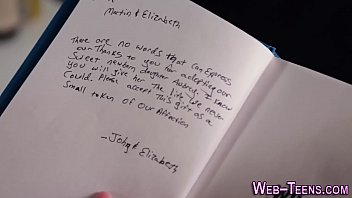 Martin & Elizabeth
There are no words that can Express
our Thanks to you for adopting our
Sweet newborn daughter Aubrey. I know
you will give her The life We never
Could. Please accept This gift as a
Small token of our Affection
- John & Elizabeth
WEB-TEENS.COM